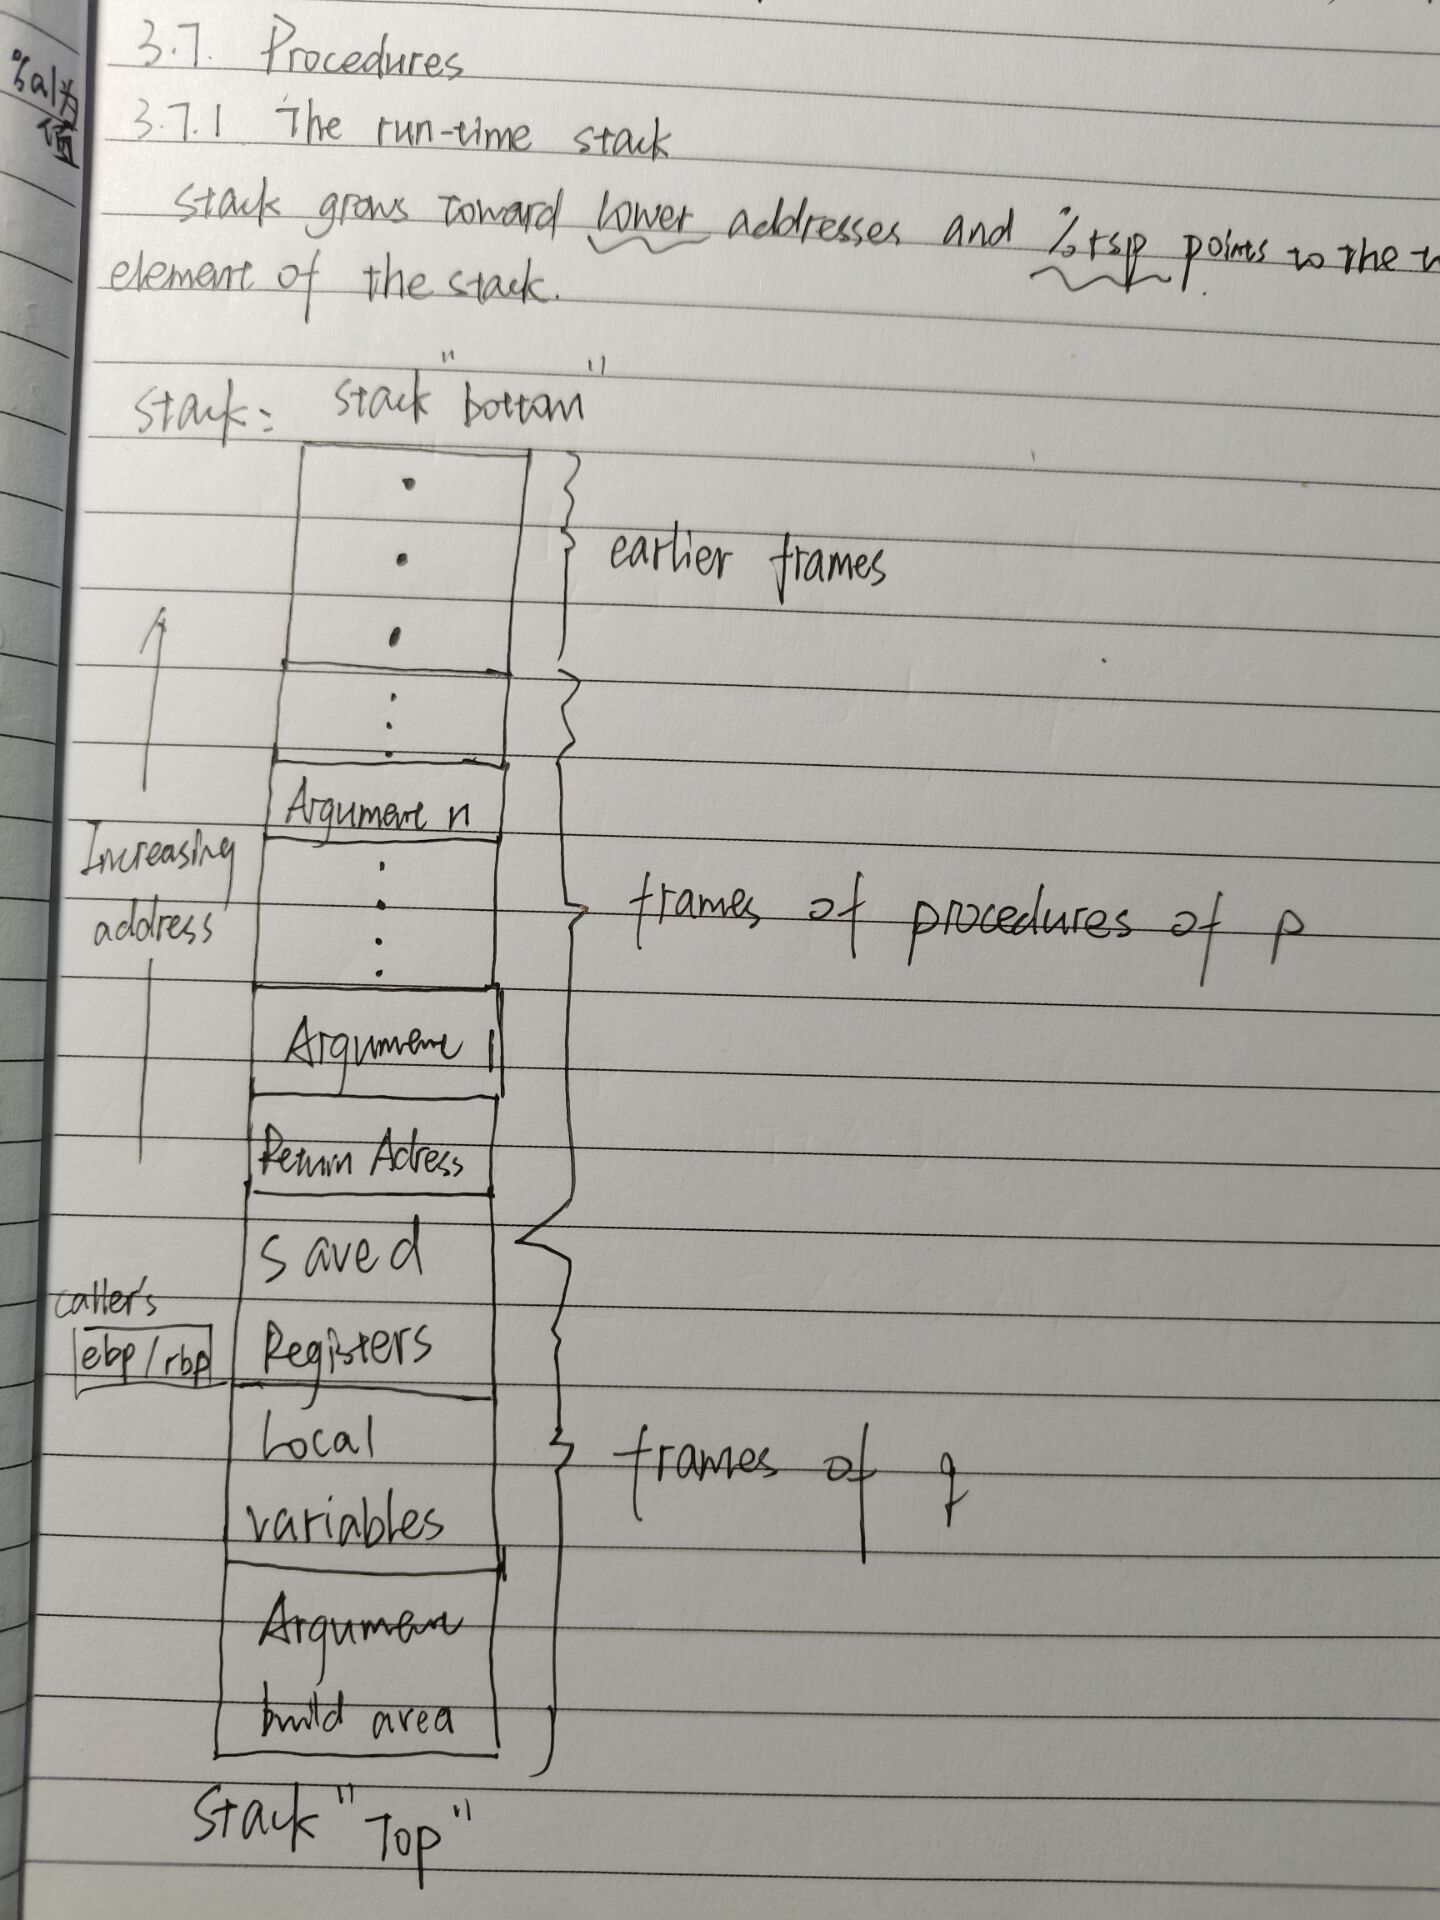 %al为
值
3.7. Procedures
3.7.1 The run-time stack
stack grows toward lower addresses and %rsp points to the
element of the stack.
stack: stack "bottom"
earlier frames
Argument n
Increasing
address
frames of procedures of p
Argument 1
Return Adress
saved
Registers
caller's
ebp/rbp
Local
variables
frames of q
Argument
build area
Stack "Top"